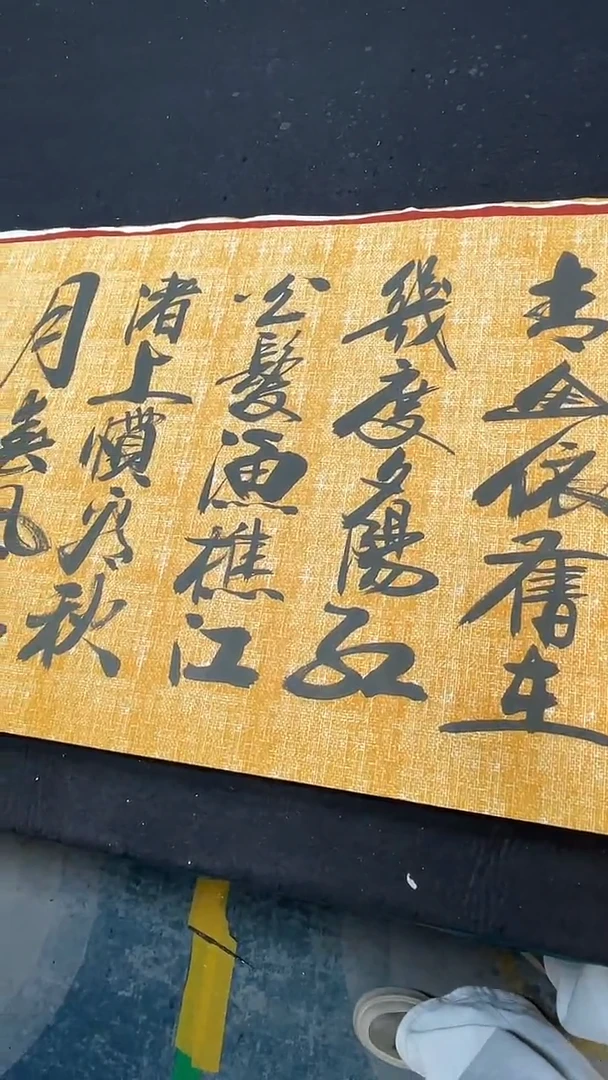 青山依舊在
幾度夕陽紅
白髮漁樵江
渚上慣看秋
月春風